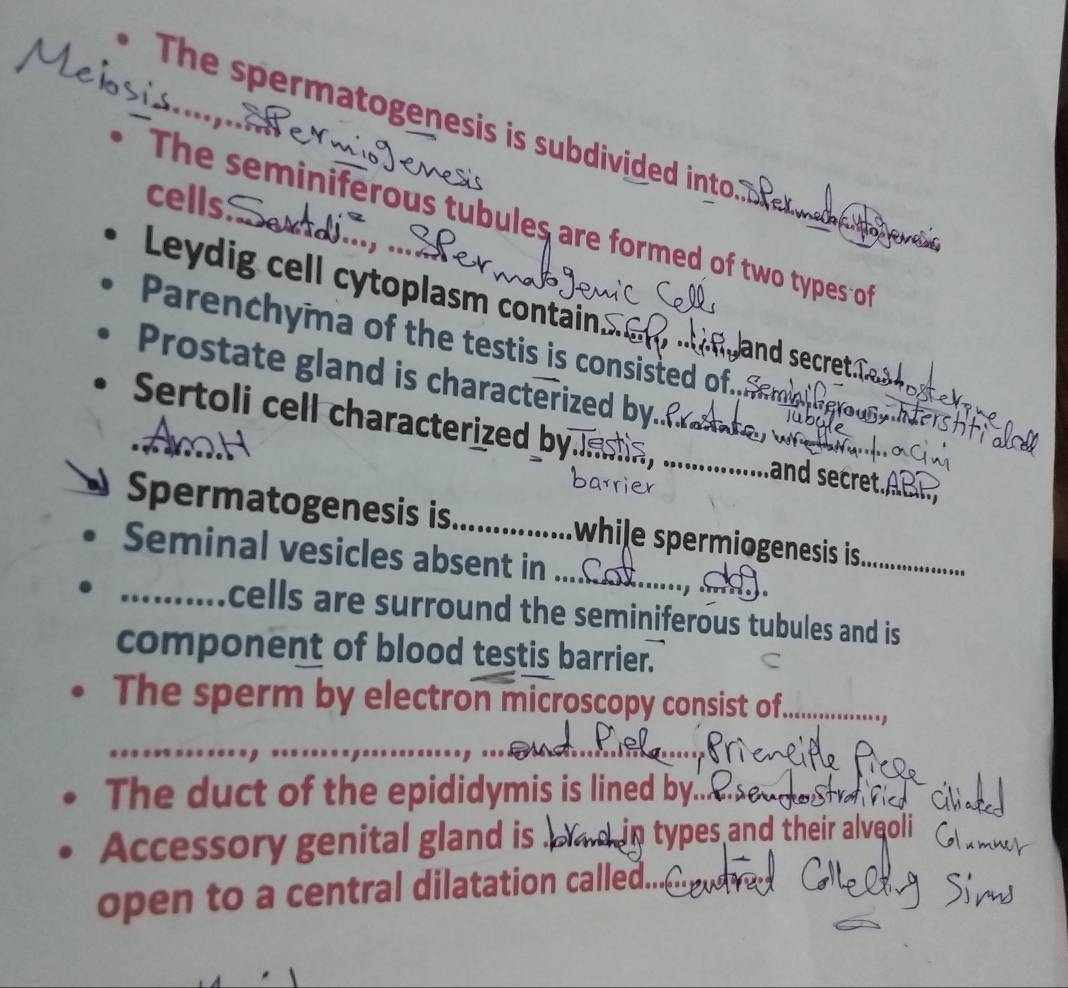 • The spermatogenesis is subdivided into..
Meiosis....,......Spermiogenesis
• The seminiferous tubules are formed of two types of
cells..Sertoli..., ...Spermatogenic Cells
• Leydig cell cytoplasm contain..SER, ..........and secret.Testosterone
• Parenchyma of the testis is consisted of..Seminiferous, interstitial cell
tubule
• Prostate gland is characterized by..Prostate, urethra.... acini
• Sertoli cell characterized by.Testis......, ...............and secret.ABP..,
barrier
.AmH
Spermatogenesis is...............while spermiogenesis is..................
• Seminal vesicles absent in ....Cat......., ..dog.
• ..........cells are surround the seminiferous tubules and is
component of blood testis barrier.
• The sperm by electron microscopy consist of...............,
.............., ........,..........., ...end Piece....., Prienciple Piece
• The duct of the epididymis is lined by...Pseudostratified ciliated
Columner
• Accessory genital gland is .branching in types and their alveoli
open to a central dilatation called...Central Collecting Sinus